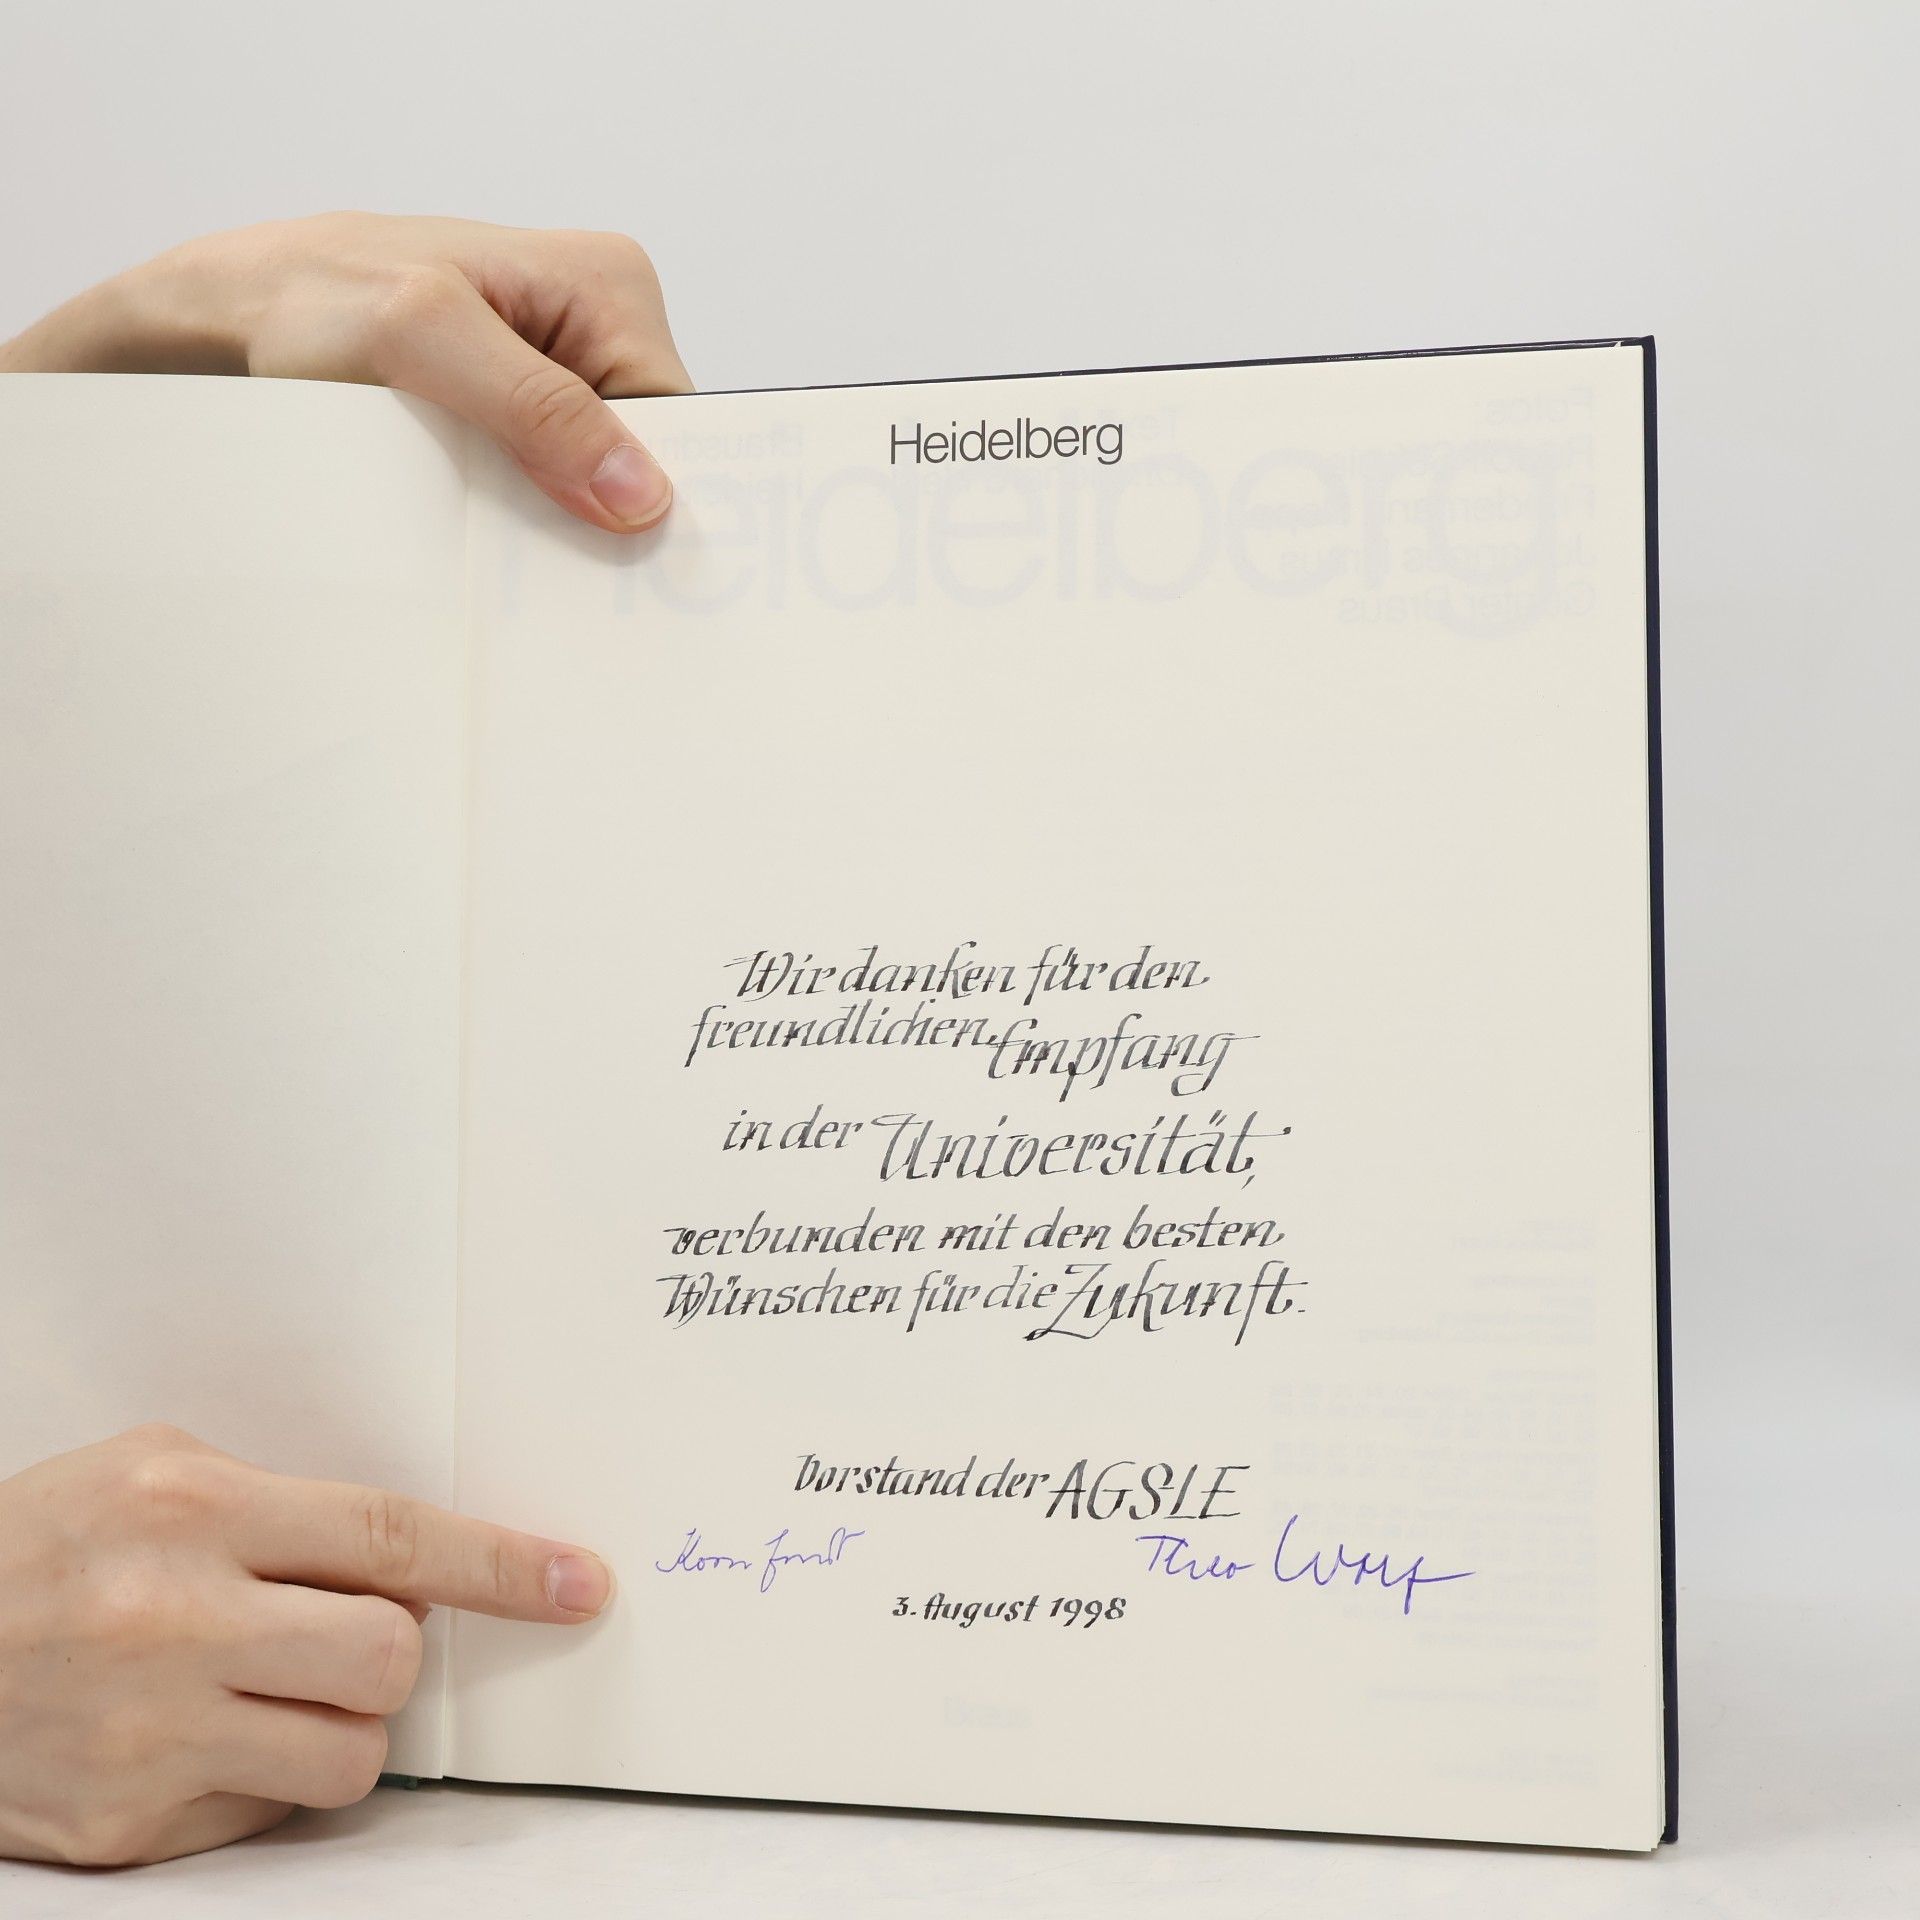 Heidelberg
Wir danken für den
freundlichen Empfang
in der Universität,
verbunden mit den besten
Wünschen für die Zukunft.
Vorstand der AGSLE
Theo Wolf
3. August 1998